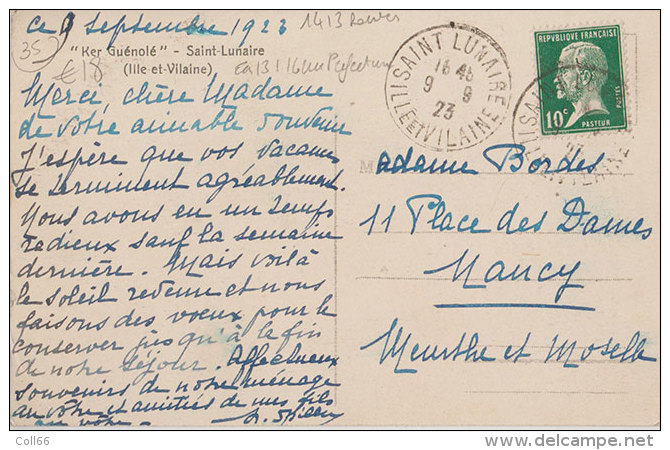 ce 9 Septembre 1923
35
"Ker Guénolé" - Saint-Lunaire
(Ille-et-Vilaine)
€18
Merci, chère Madame
de votre aimable souvenir
J'espère que vos vacances
se terminent agréablement.
Nous avons eu un temps
radieux sauf la semaine
dernière. Mais voilà
le soleil revenu et nous
faisons des vœux pour le
conserver jusqu'à la fin
de notre séjour. Affectueux
souvenirs de notre ménage
au vôtre et amitiés de mes fils
au vôtre -
SAINT LUNAIRE
ILLE ET VILAINE
16 45
9 9
23
REPUBLIQUE FRANÇAISE
POSTES
10c
PASTEUR
Madame Bordes
11 Place des Dames
Nancy
Meurthe et Moselle
Coll66
www.delcampe.net